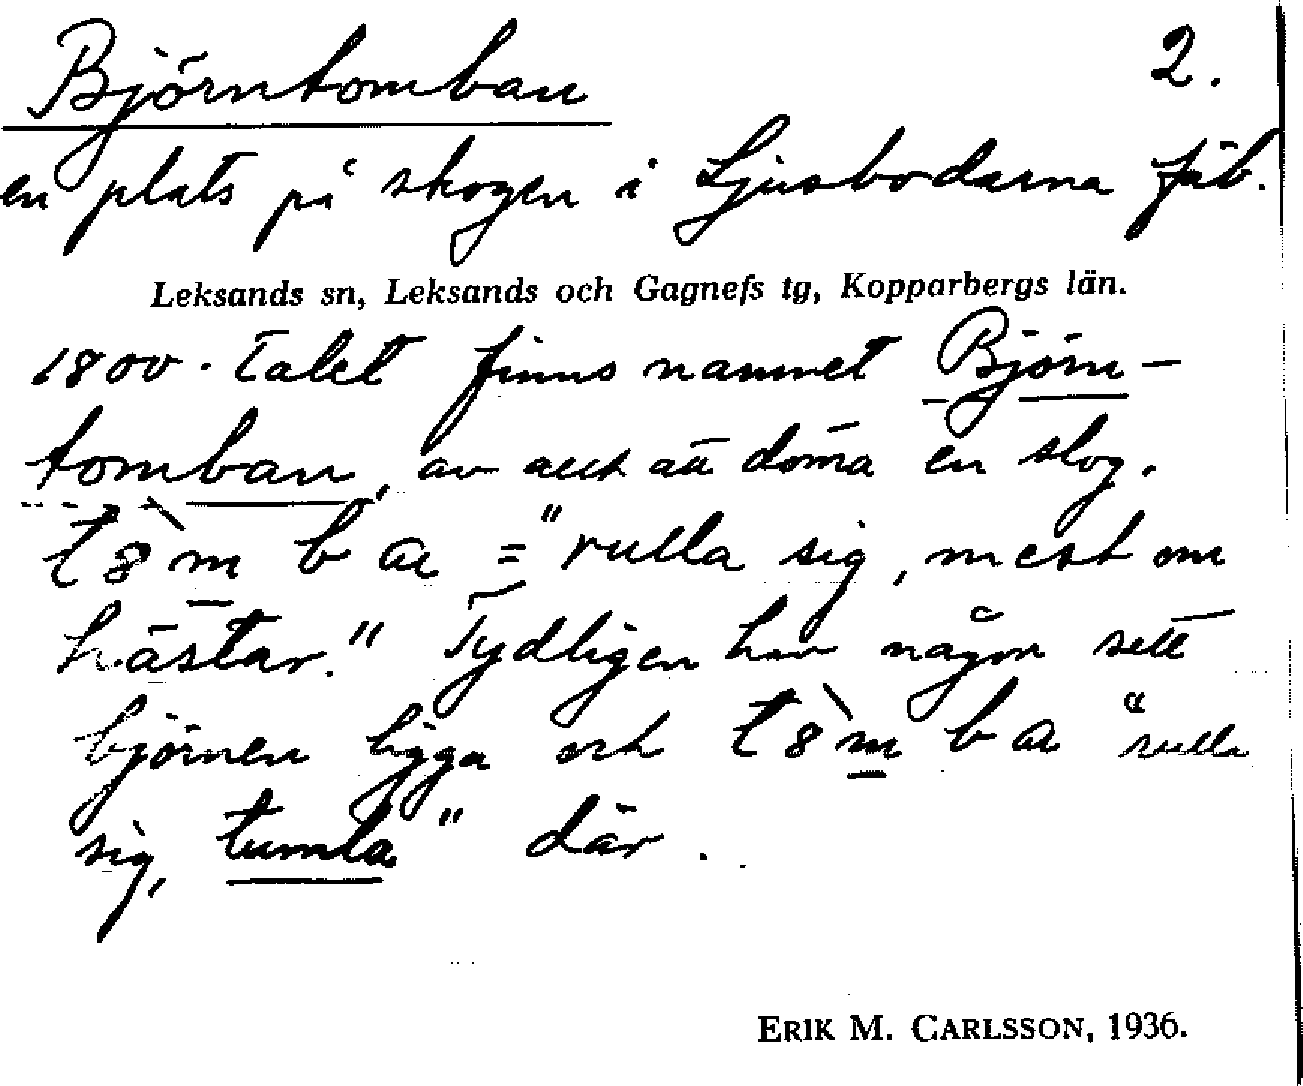 Björntomban 2.
en plats på skogen i Ljusbodarna fäb.
Leksands sn, Leksands och Gagnefs tg, Kopparbergs län.
1800-talet finns namnet Björn-
tomban, av allt att döma en slog.
t8̀m ba = "rulla sig, mest om
hästar." Tydligen har någon sett
björnen ligga och t8̀m ba "rulla
sig, tumla" där.
ERIK M. CARLSSON, 1936.